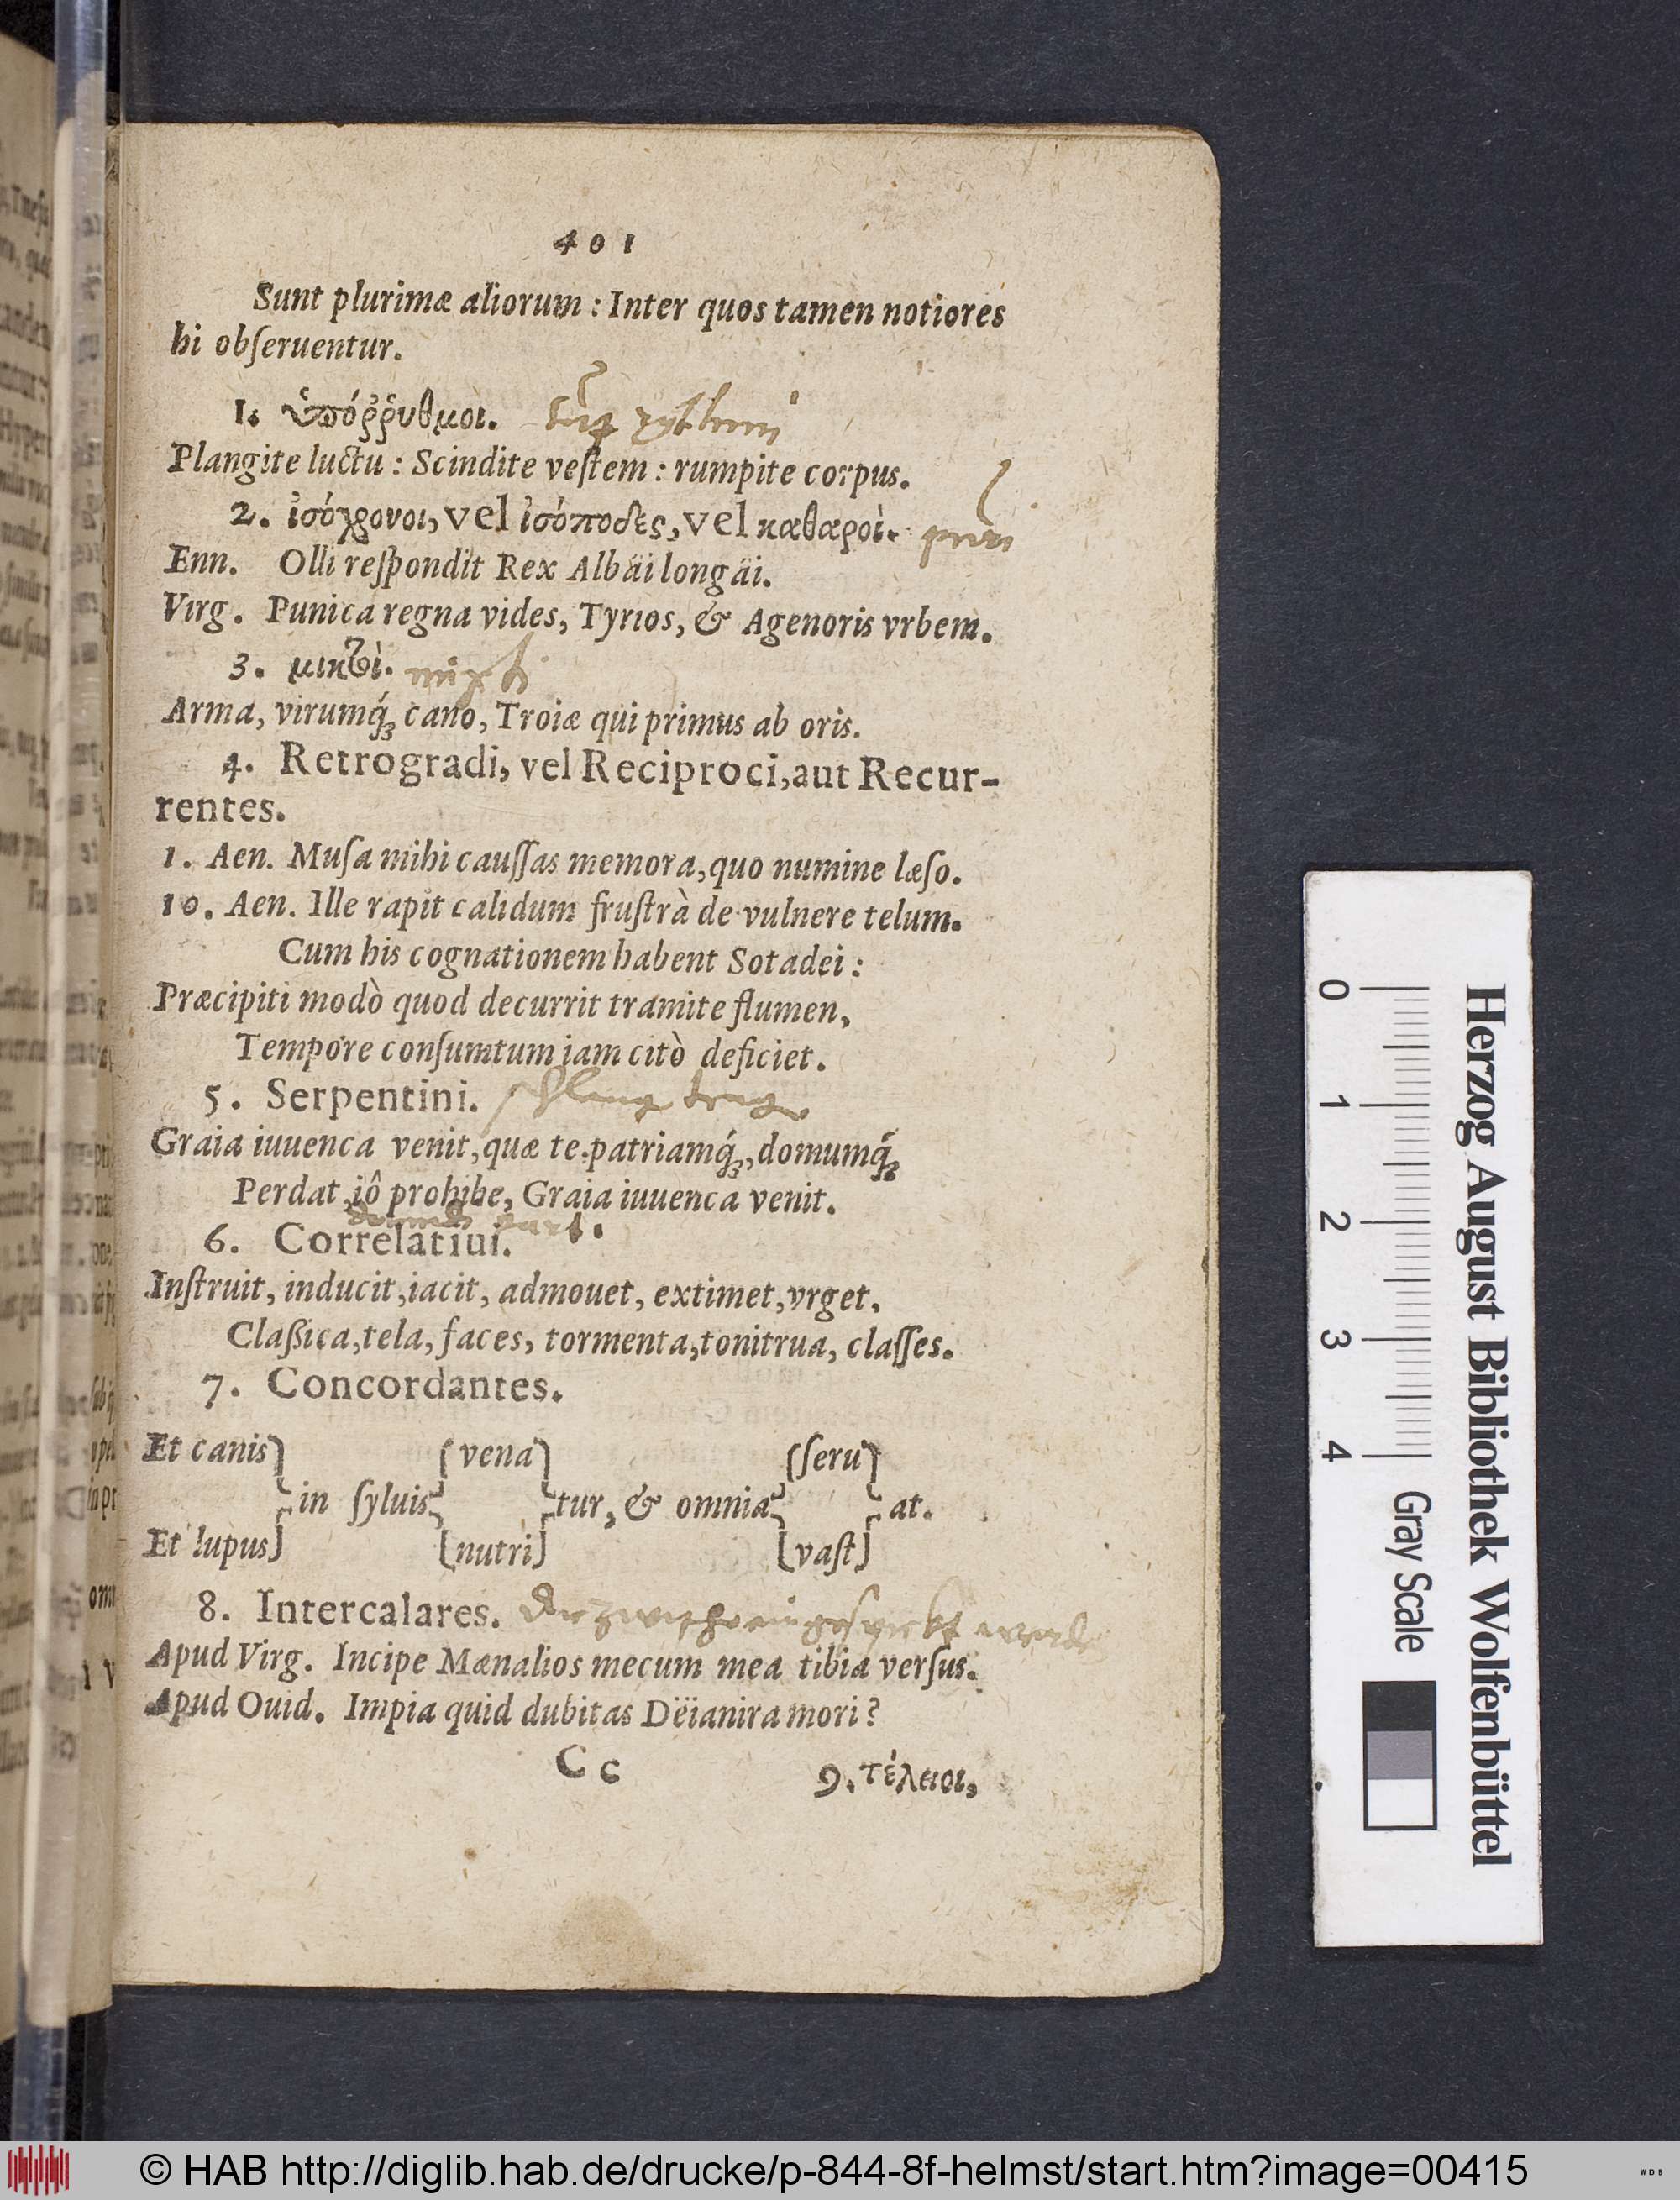 401
Sunt plurimæ aliorum : Inter quos tamen notiores
hi obſeruentur.
1. ὑπόῤῥυθμοι.
Plangite luctu : Scindite veſtem : rumpite corpus.
2. ἰσόχρονοι, vel ἰσόποδες, vel καθαροὶ. puri
Enn. Olli reſpondit Rex Albäi longäi.
Virg. Punica regna vides, Tyrios, & Agenoris vrbem.
3. μικτοὶ. mixti
Arma, virumq́ꝫ cano, Troiæ qui primus ab oris.
4. Retrogradi, vel Reciproci, aut Recur-
rentes.
1. Aen. Muſa mihi cauſſas memora, quo numine læſo.
10. Aen. Ille rapit calidum fruſtrà de vulnere telum.
Cum his cognationem habent Sotadei :
Præcipiti modò quod decurrit tramite flumen,
Tempore conſumtum iam citò deficiet.
5. Serpentini.
Graia iuuenca venit, quæ te patriamq́ꝫ, domumq́ꝫ
Perdat, iô prohibe, Graia iuuenca venit.
6. Correlatiui.
Inſtruit, inducit, iacit, admouet, extimet, vrget,
Claßica, tela, faces, tormenta, tonitrua, claſſes.
7. Concordantes.
Et canis vena ſeru
in ſyluis tur, & omnia at.
Et lupus nutri vaſt
8. Intercalares.
Apud Virg. Incipe Mænalios mecum mea tibia verſus.
Apud Ouid. Impia quid dubitas Dëianira mori?
Cc 9. τέλειοι,
Herzog August Bibliothek Wolfenbüttel
0 1 2 3 4 Gray Scale
© HAB http://diglib.hab.de/drucke/p-844-8f-helmst/start.htm?image=00415
WDB